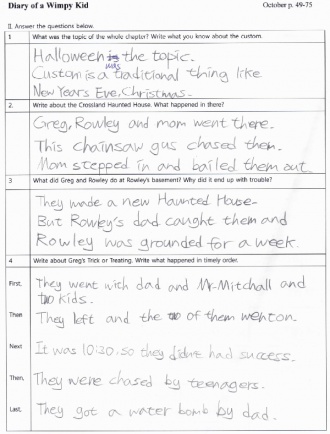 Diary of a Wimpy Kid October p. 49-75
II. Answer the questions below.
1 What was the topic of the whole chapter? Write what you know about the custom.
Halloween was the topic.
Custom is a traditional thing like
New Years Eve, Christmas.
2. Write about the Crossland Haunted House. What happened in there?
Greg, Rowley and mom went there.
This chainsaw gus chased them.
Mom stepped in and bailed them out.
3 What did Greg and Rowley do at Rowley's basement? Why did it end up with trouble?
They made a new Haunted House.
But Rowley's dad caught them and
Rowley was grounded for a week.
4 Write about Greg's Trick or Treating. Write what happened in timely order.
First, They went with dad and Mr. Mitchall and
two kids.
Then They left and the two of them wenton.
Next It was 10:30. so they didnt had success.
Then, They were chased by teenagers.
Last. They got a water bomb by dad.